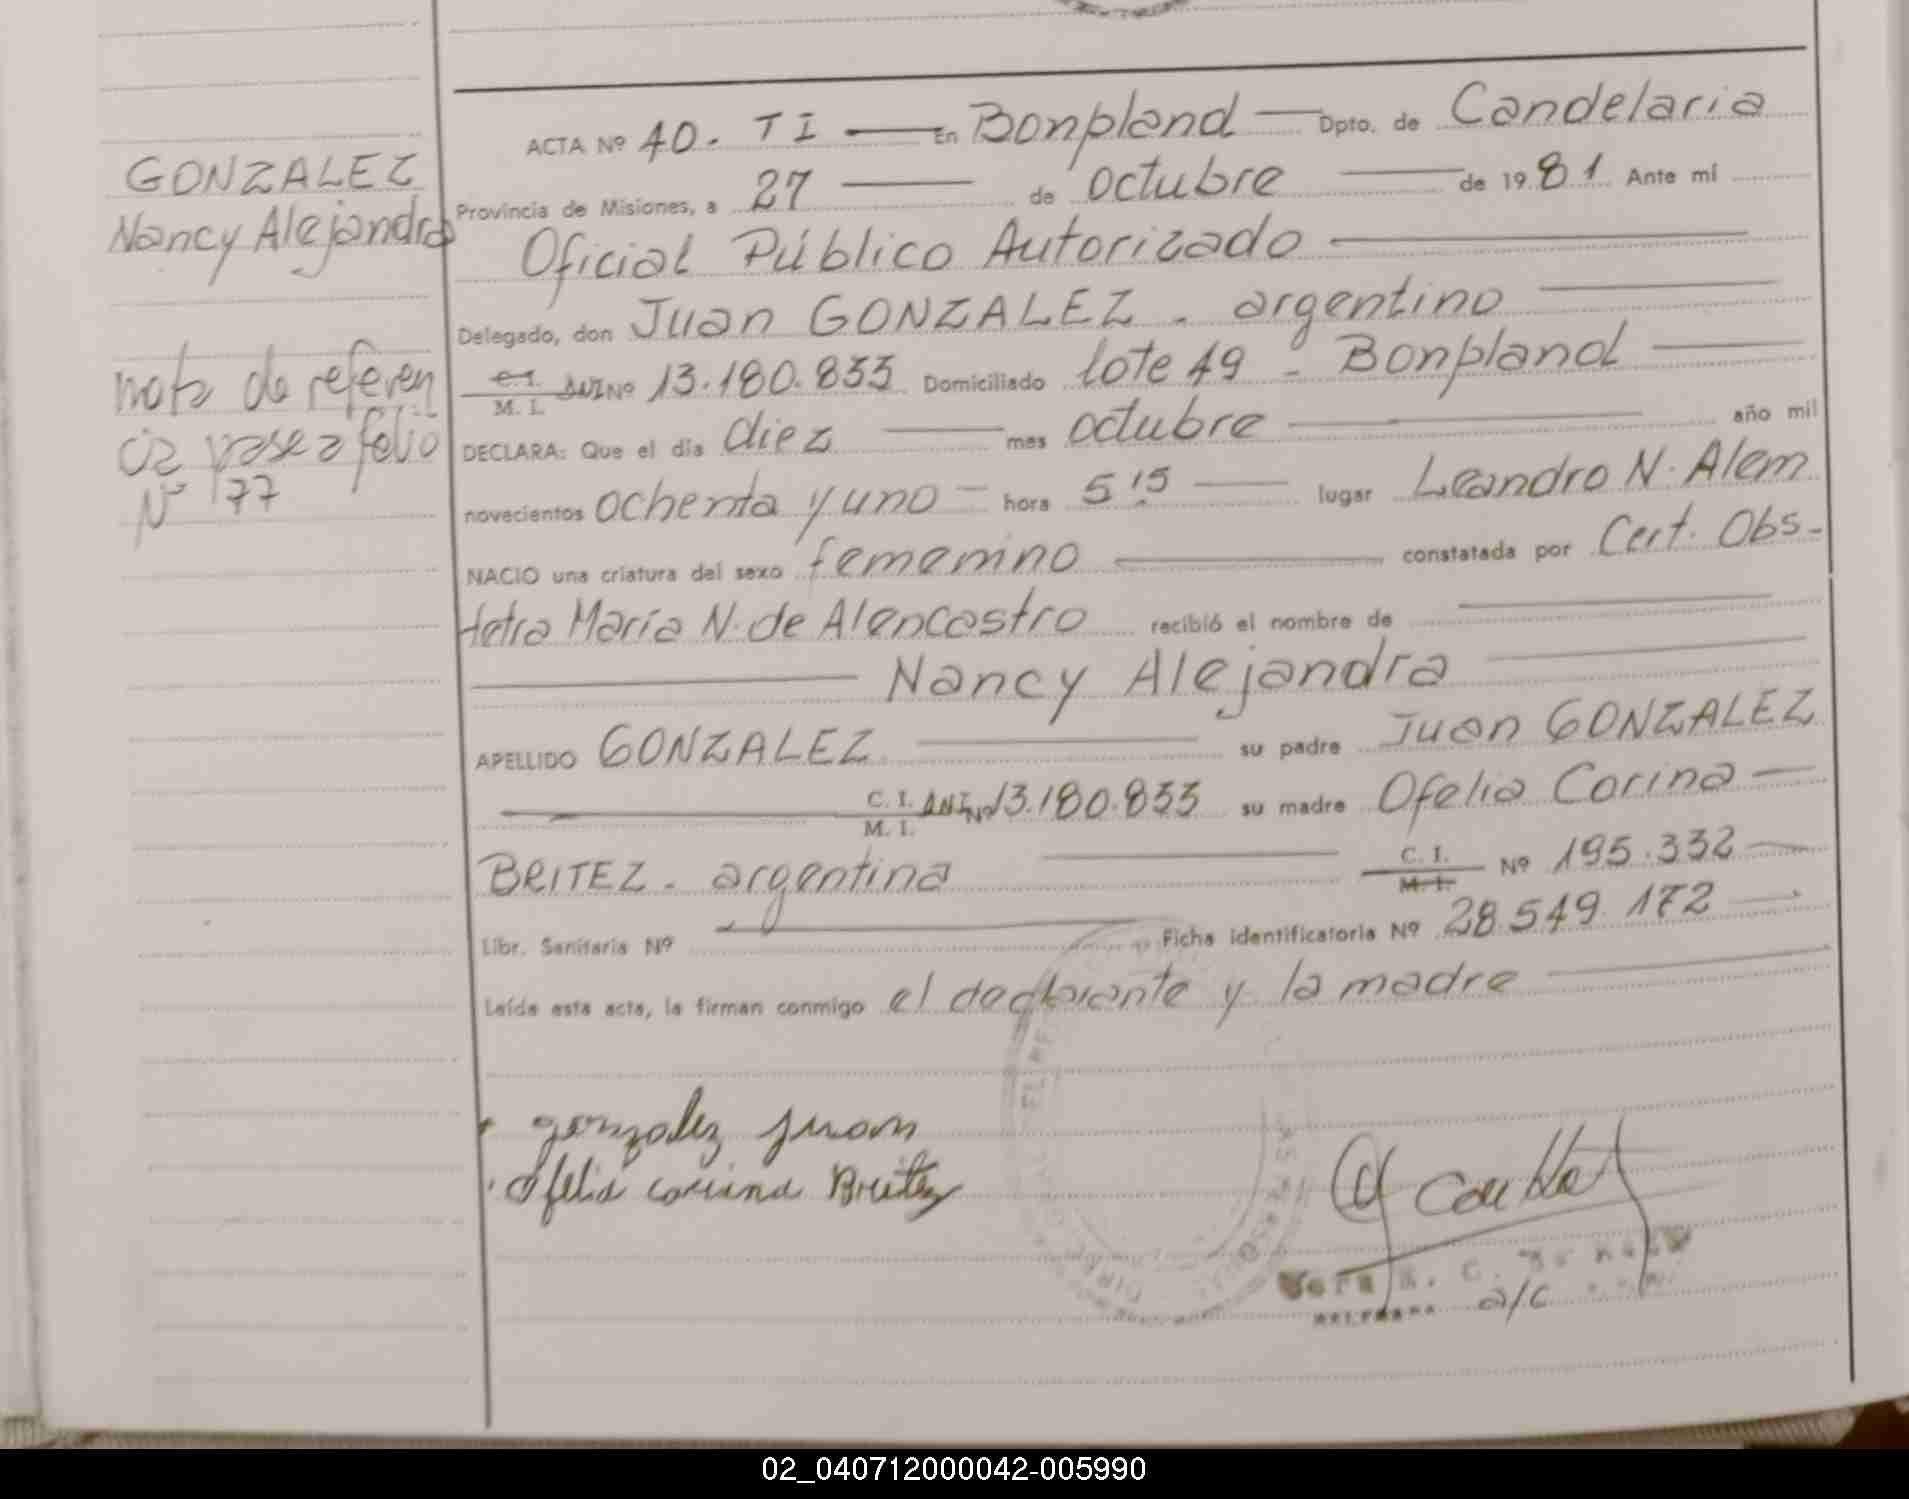 GONZALEZ
Nancy Alejandra
nota de referen
cia pase a folio
Nº 77
ACTA Nº 40. T I — En Bonpland — Dpto. de Candelaria
Provincia de Misiones, a 27 — de octubre — de 1981 Ante mí
Oficial Público Autorizado —
Delegado, don Juan GONZALEZ - argentino —
C.I. DNI Nº 13.180.833 Domiciliado lote 49 - Bonpland —
M. I.
DECLARA: Que el día diez — mes octubre — año mil
novecientos ochenta y uno — hora 5 15 — lugar Leandro N. Alem
NACIO una criatura del sexo femenino — constatada por Cert. Obs-
tetra María N. de Alencastro recibió el nombre de —
— Nancy Alejandra —
APELLIDO GONZALEZ — su padre Juan GONZALEZ
— C. I. DNI Nº 13.180.833 su madre Ofelia Corina —
M. I.
BRITEZ - argentina — C. I. Nº 195.332 —
M. I.
Libr. Sanitaria Nº — Ficha identificatoria Nº 28.549.172 —
Leída esta acta, la firman conmigo el declarante y la madre —
gonzalez juan
Ofelia corina Britez
a/c
02_040712000042-005990